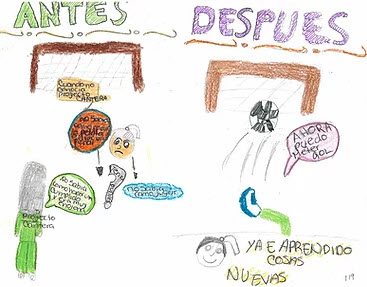 ANTES
Cuando no
conocia
Proyecto
CANTERA
No Sabia
No Sabia
como hacer un
No Sabia
como jugar
Proyecto
Cantera
DESPUES
AHORA
puedo
meter
gol
YA E APRENDIDO
COSAS
NUEVAS